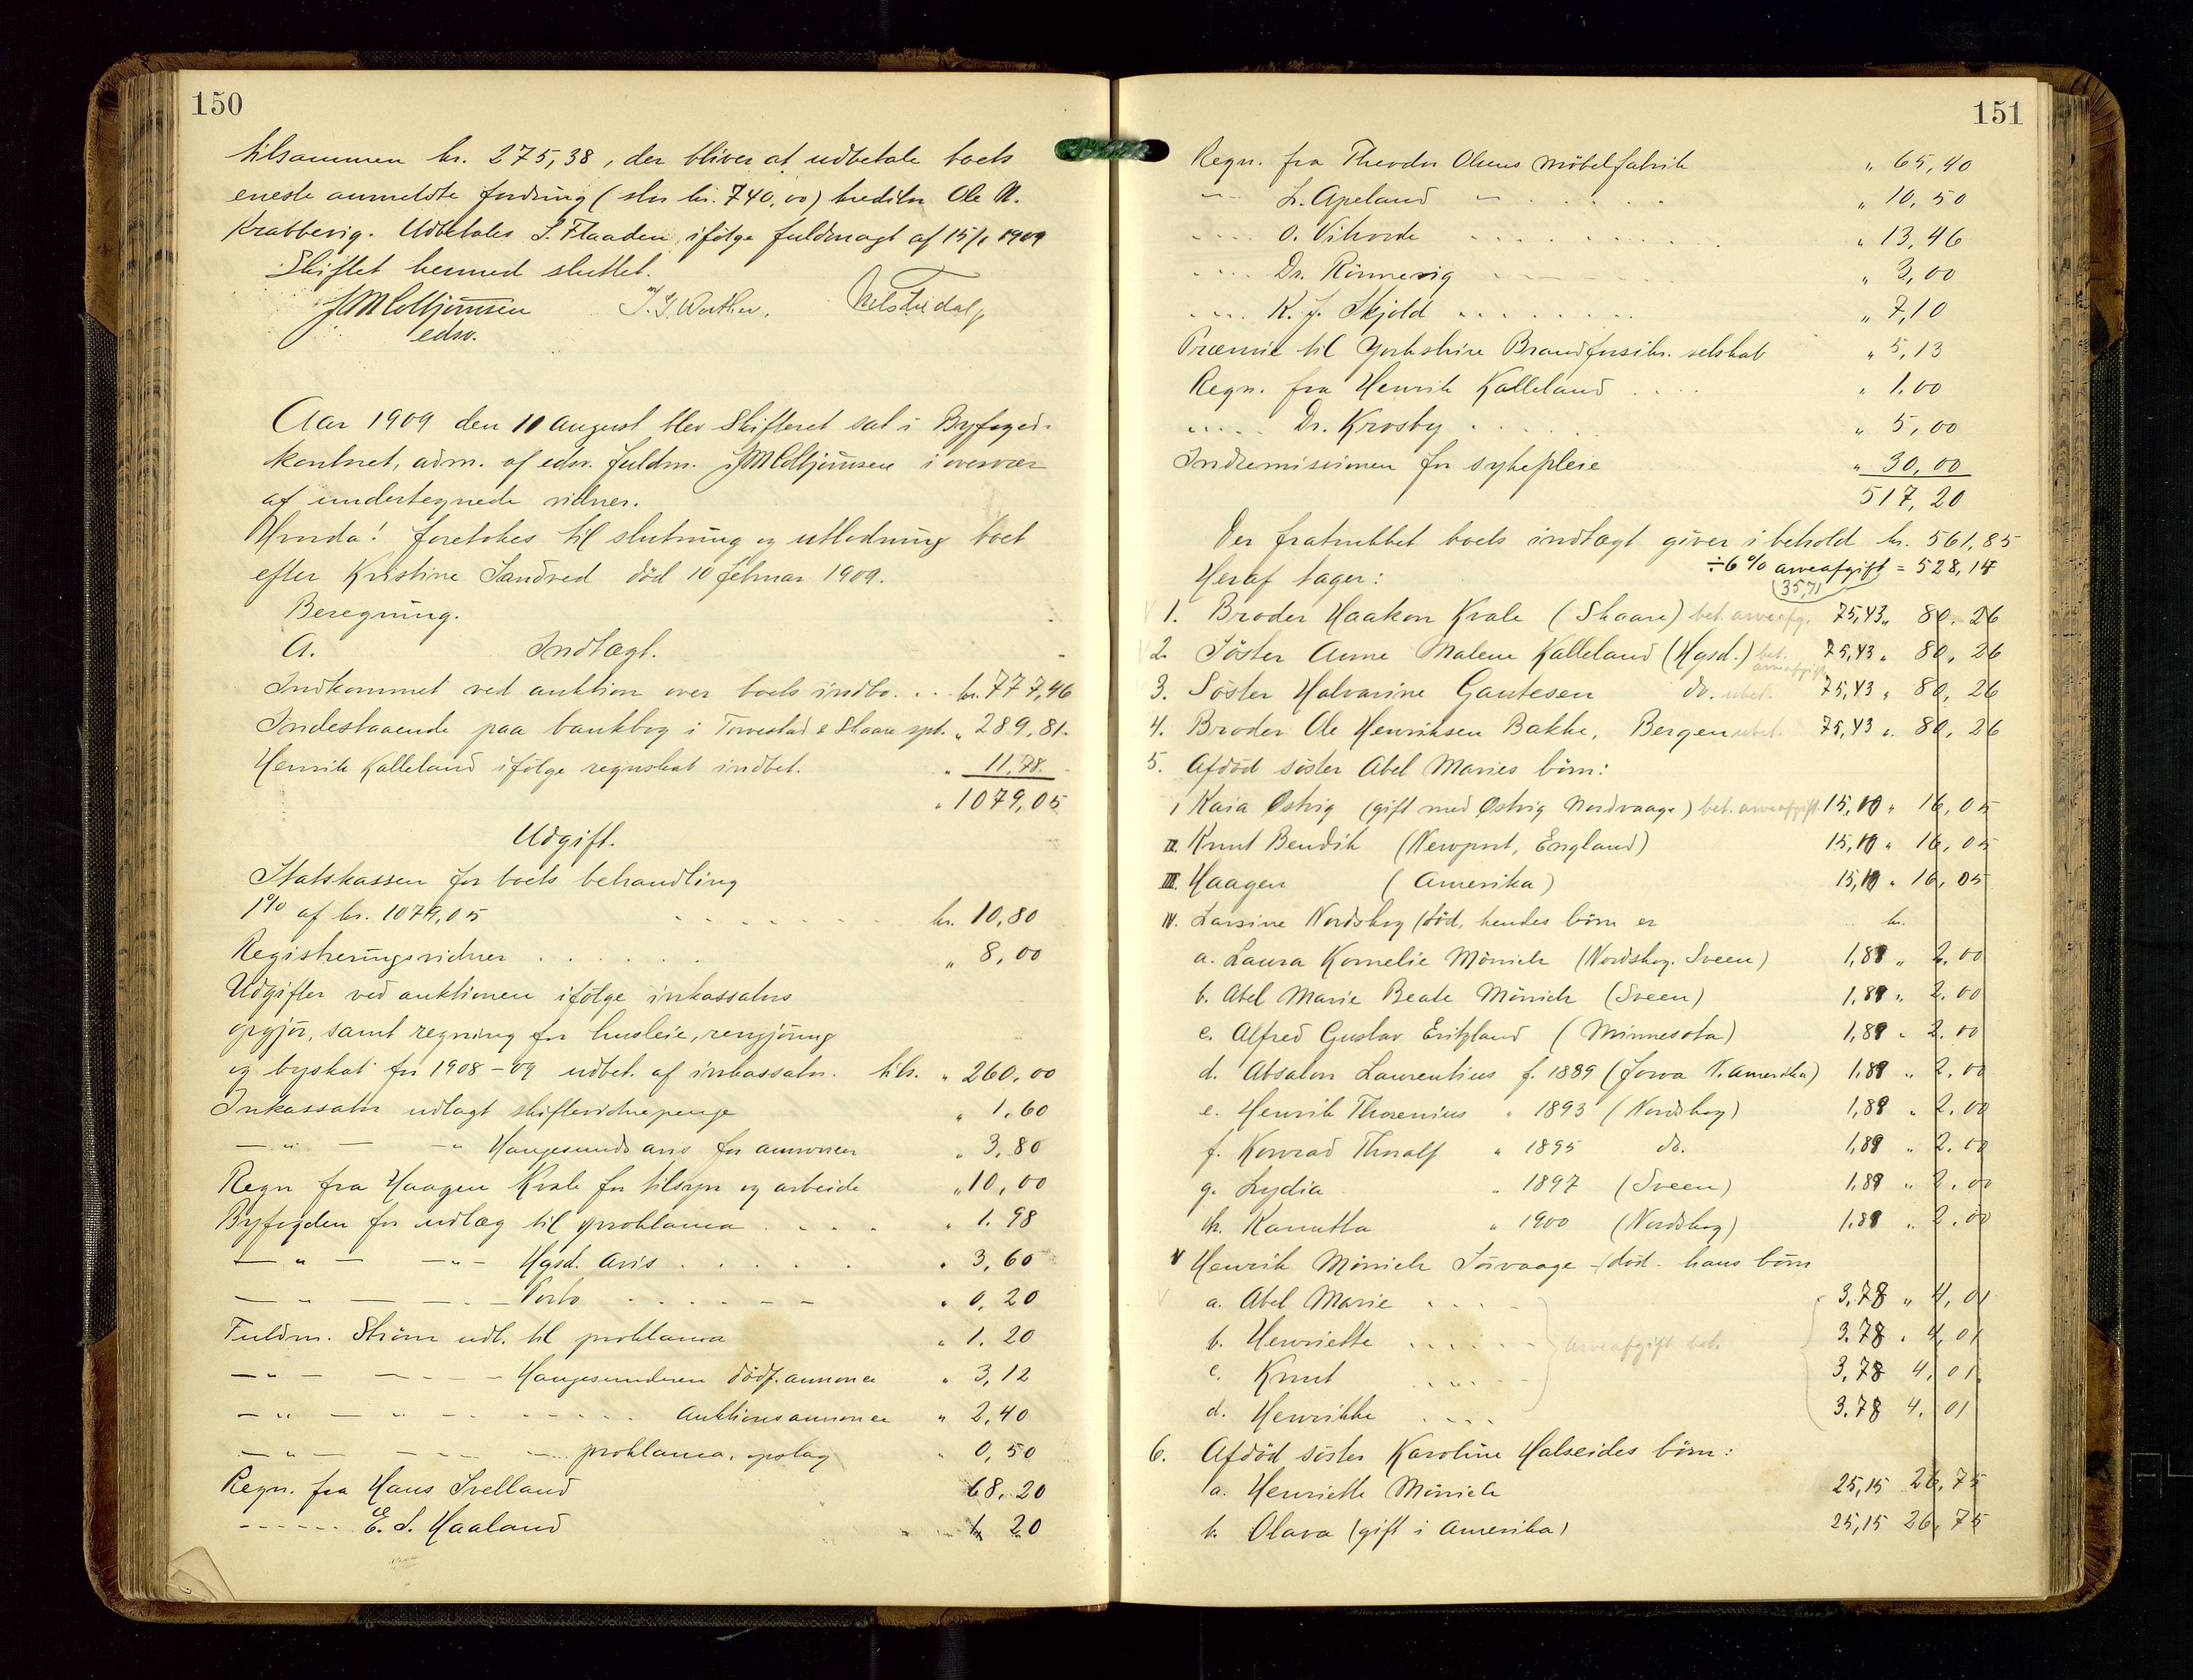 150
tilsammen kr. 275,38, der bliver at udbetale boets
eneste anmeldte fordring (stor kr. 740,00) kreditor Ole N.
Krabbevig. Udbetales S. Flaaden ifölge fuldmagt af 15/1 1909
Skiftet hermed sluttet.
edsv.
Aar 1909 den 10 august blev Skifteret sat i Byfoged-
kontoret, adm. af edsv. fuldm. i overvær
af undertegnede vidner.
Hvorda! foretokes til slutning og utlodning boet
efter Kristine Sandved död 10 februar 1909.
Beregning.
A. Indtægt.
Indkommet ved auktion over boets indbo. . . kr. 777,46
Indestaaende paa bankbog i Torvestad & Skaare spb. „ 289,81.
Henrik Kalleland ifölge regnskab indbet. „ 11,78.
„ 1079,05
Udgift.
Statskassen for boets behandling
1% af kr. 1079,05 . . . . . . . kr. 10,80
Registreringsvidner . . . . . . „ 8,00
Udgifter ved auktionen ifölge inkassators
opgjör, samt regning for husleie, rengjöring
og byskat for 1908-09 udbet. af inkassator. tils. „ 260,00
Inkassator udlagt skiftevidnepenge „ 1,60
— „ — — „ Haugesunds avis for annoncen „ 3,80
Regn fra Haagen Kvale for tilsyn og arbeide „ 10,00
Byfogden for udlæg til proklama . . . . „ 1.98
— „ — — „ - Hgsd. Avis . . . . . „ 3,60
— „ — — . — Porto . . . . . . „ 0,20
Fuldm. Ström udl. til proklama „ 1.20
— „ — — — — Haugesunderen dödf. annonce „ 3,12
— „ — „ — . . . . . Auktionsannonce „ 2,40
— „ — — — — proklama, opslag „ 0,50
Regn. fra Hans Svelland 68,20
- - - - - - E. S. Haaland „ 1 20
151
Regn. fra Theodor Olsens Möbelfabrik „ 65,40
— L. Apeland — . . . . . „ 10,50
. . . . O. Vikvode . . . . . . . . „ 13,46
. . . . Dr. Rönnevig . . . . „ 3,00
. . . . K. J. Skjold . . . . . . . „ 7,10
Præmie til Yorkshire Brandforsikr. selskab „ 5,13
Regn. fra Henrik Kalleland . . . „ 1,00
. . . . . Dr. Krosby . . . . . . „ 5,00
Indremissionen for sykepleie „ 30,00
517,20
Der fratrukket boets indtægt giver i behold kr. 561,85
÷6% arveafgift = 528,14
Heraf tager: (35,71)
1. Broder Haakon Kvale (Skaare) bet. arveafg. 75,43 „ 80,26
2. Söster Anne Malene Kalleland (Hgsd.) bet. arveafgift 75,43 „ 80,26
3. Söster Halvarine Gautesen do. ubet. 75,43 „ 80,26
4. Broder Ole Henriksen Bakke, Bergen ubet. 75,43 „ 80,26
5. Afdöd söster Abel Maries börn:
I Kaia Østvig (gift med Østvig Nordvaage) bet. arveafgift 15,10 „ 16,05
II. Knut Bendik (Newport, England) 15,10 „ 16,05
III. Haagen (Amerika) 15,10 „ 16,05
IV. Larsine Nordskog (död, hendes börn er kr.
a. Laura Kornelie Mönich (Nordskog. Sveen) 1,89 „ 2,00
b. Abel Marie Beate Mönich (Sveen) 1,89 „ 2.00
c. Alfred Gustav Eritzland (Minnesota) 1,89 „ 2.00
d. Absalon Laurentius f. 1889 (Jowa N. Amerika) 1,89 „ 2.00
e. Henrik Thorenius „ 1893 (Nordskog) 1,89 „ 2.00
f. Konrad Thoralf „ 1895 do. 1,89 „ 2.00
g. Lydia „ 1897 (Sveen) 1,89 „ 2.00
h. Kamilla „ 1900 (Nordskog) 1,89 „ 2.00
V Henrik Mönich Sörvaage - död - hans börn
a. Abel Marie . . . . 3,78 „ 4,01
b. Henriette . . . . . arveafgift bet. 3,78 „ 4,01
c. Knut . . . . 3,78 4,01
d. Henrikke . . . . 3,78 4,01
6. Afdöd söster Karoline Halseides börn:
a. Henriette Mönich 25,15 26,75
b. Olava (gift i Amerika) 25,15 26,75